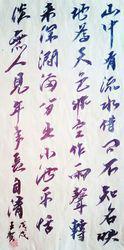 山中有流水借問不知名映
地為天色飛空作雨聲轉
來深澗滿分出小池平恬
淡無人見年年長自清
戊戌